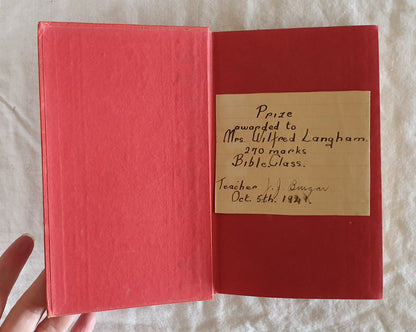 Prize
awarded to
Mrs. Wilfred Langham.
270 marks
Bible Class.
Teacher J. J.
Oct. 5th.